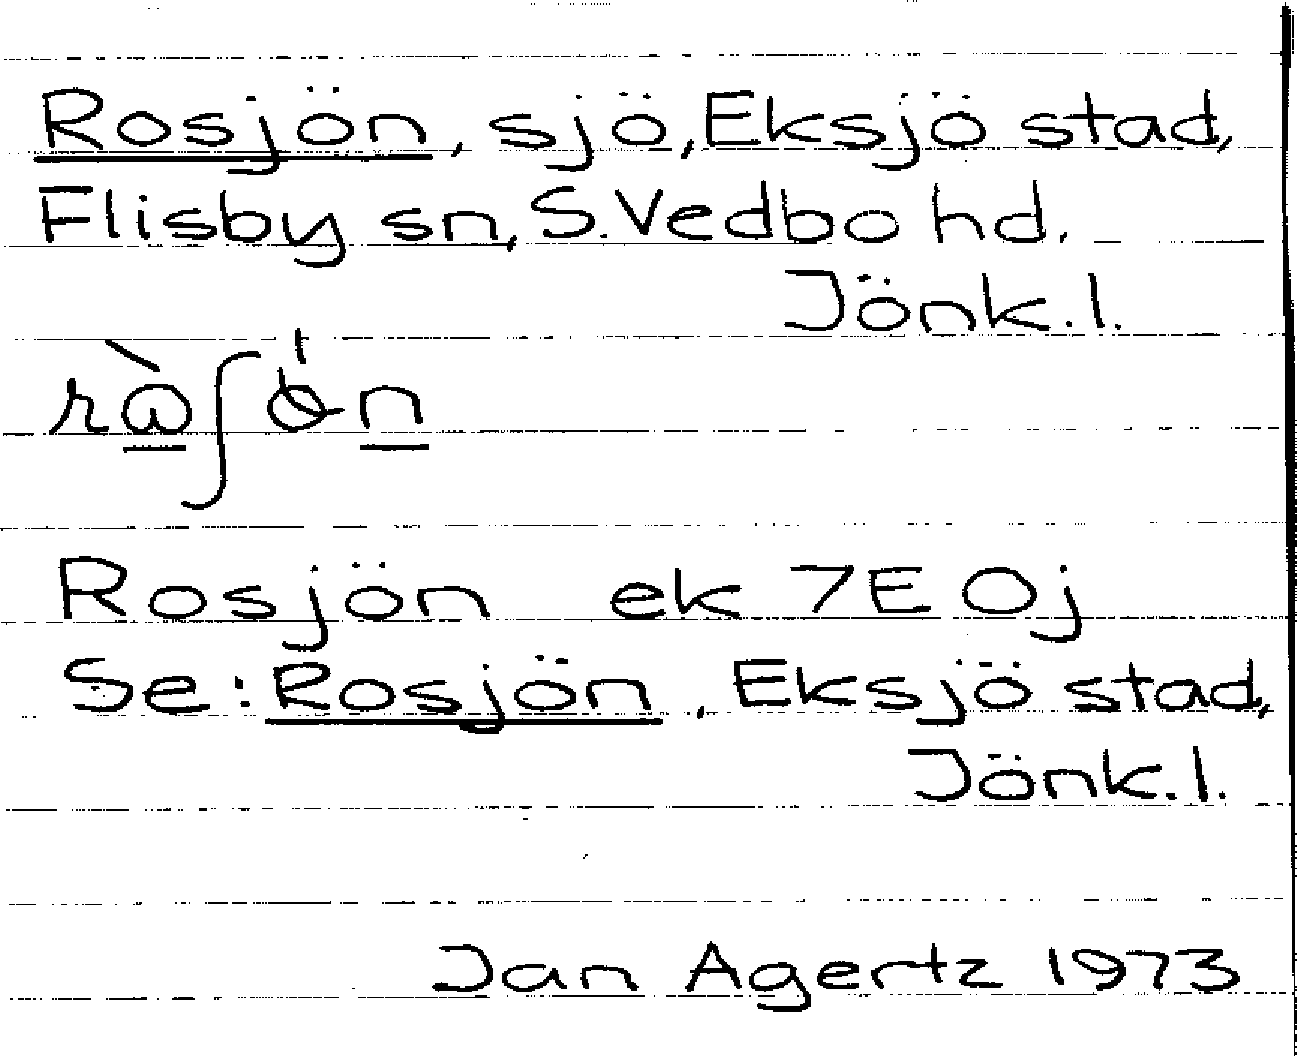 Rosjön, sjö, Eksjö stad,
Flisby sn, S. Vedbo hd.
Jönk. l.
Rosjön ek 7E 0j
Se: Rosjön, Eksjö stad,
Jönk. l.
Jan Agertz 1973